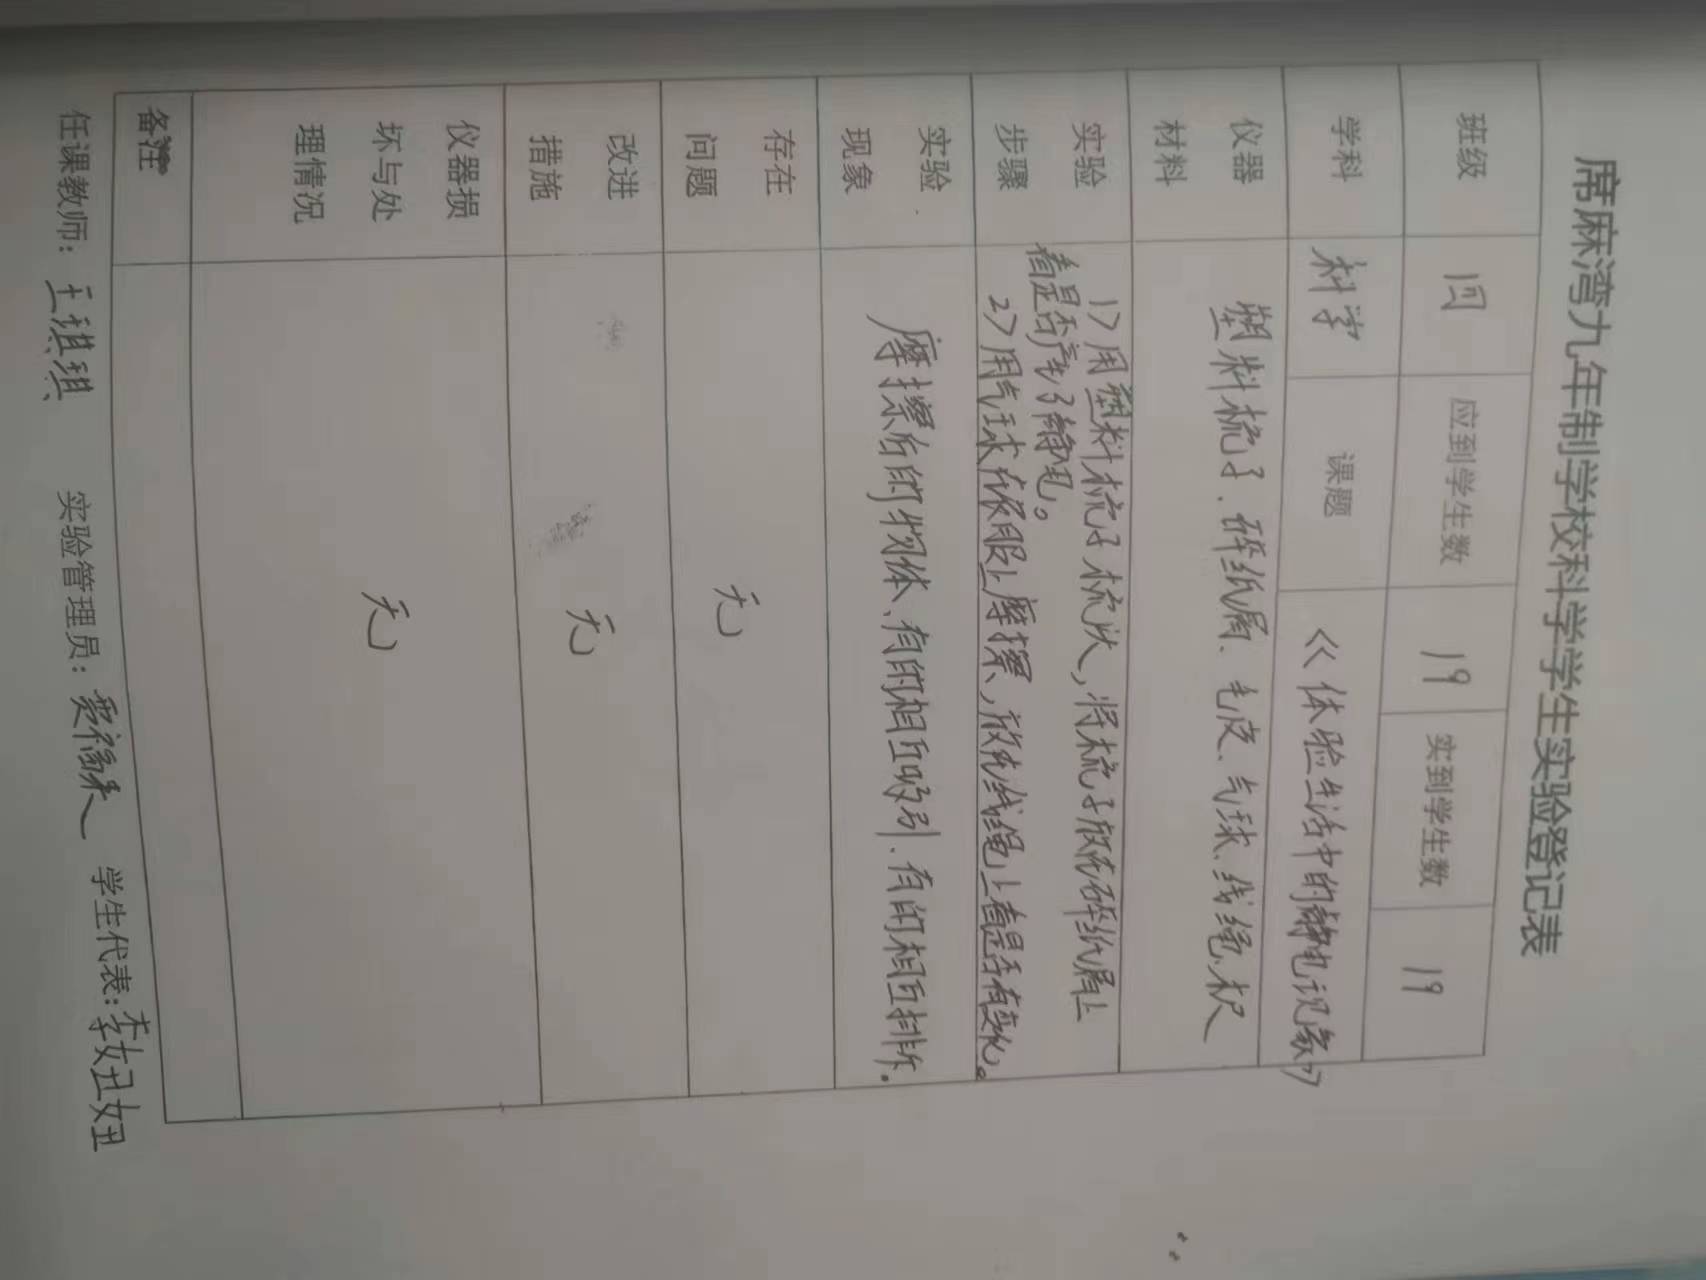 席麻湾九年制学校科学学生实验登记表
班级 四 应到学生数 19 实到学生数 19
学科 科学 课题 《体验生活中的静电现象》
仪器 材料
塑料梳子、碎纸屑、毛皮、气球、线绳、木尺
实验 步骤
1>用塑料梳子梳头,将梳子放在碎纸屑上
看是否产生了静电。
2>用气球在衣服上摩擦,放在线绳上看是否有变化。
实验 现象
摩擦后的物体、有的相互吸引、有的相互排斥.
存在 问题
无
改进 措施
无
仪器损 坏与处 理情况
无
备注
任课教师: 王琪琪 实验管理员: 贾福来 学生代表: 李妞妞